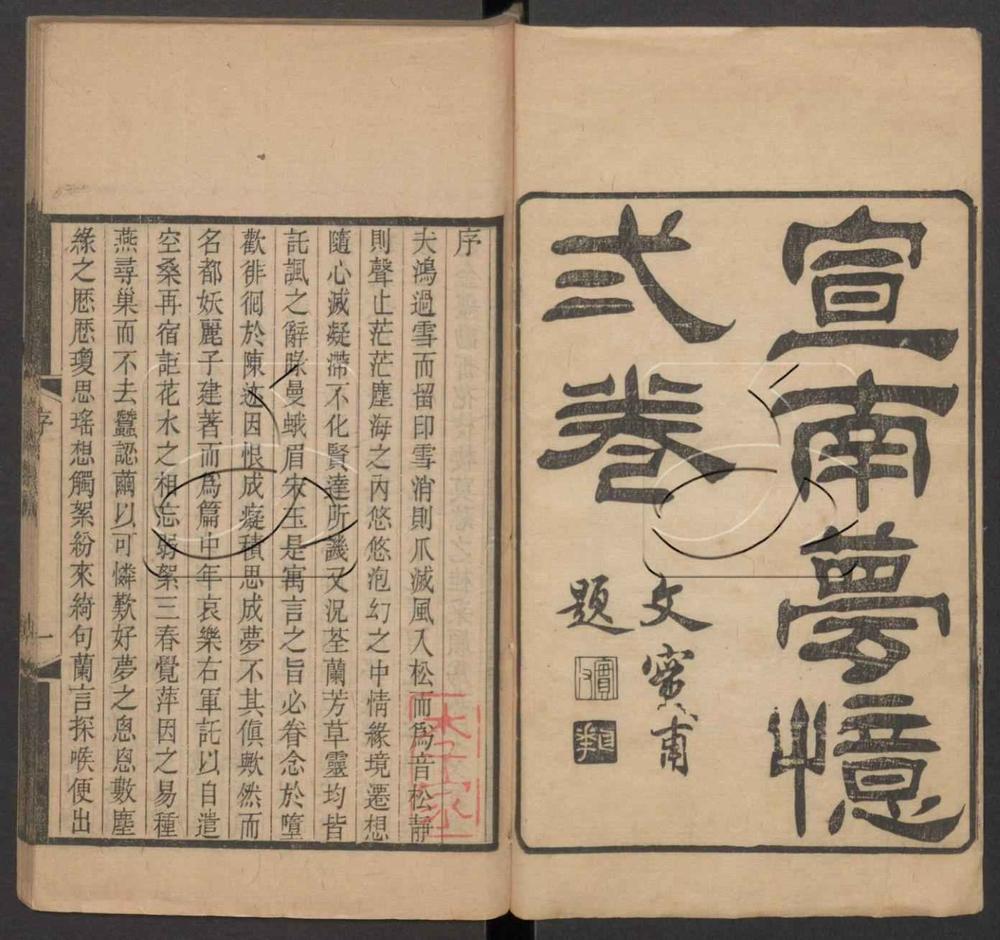 宣南夢憶
弍卷
文寶甫
題
序
夫鴻過雪而留印雪消則爪滅風入松而爲音松靜
則聲止茫茫塵海之內悠悠泡幻之中情緣境遷想
隨心滅凝滯不化賢達所譏又況荃蘭芳草靈均皆
託諷之辭睩曼蛾眉宋玉是寓言之旨必眷念於墮
歡徘徊於陳迹因恨成癡積思成夢不其傎歟然而
名都妖麗子建著而爲篇中年哀樂右軍託以自遣
空桑再宿詎花水之相忘弱絮三春覺萍因之易種
燕尋巢而不去蠶認繭以可憐歎好夢之悤悤數塵
緣之歷歷瓊思瑤想觸絮紛來綺句蘭言探喉便出
序
一